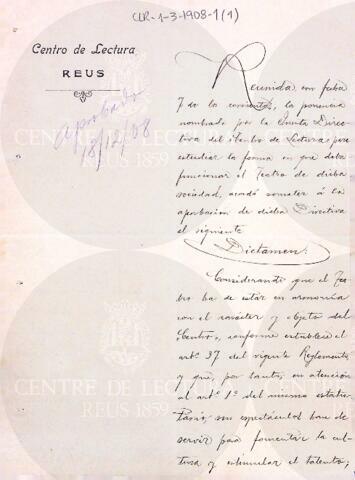 CLR-1-3-1908-1(1)
Centro de Lectura
REUS
aprobado
18/12/08
Reunida, con fecha
7 de los corrientes, la ponencia
nombrada por la Junta Direc-
tiva del Centro de Lectura para
estudiar la forma en que debe
funcionar el Teatro de dicha
sociedad, acordó someter á la
aprobación de dicha Directiva
el siguiente
Dictamen:
Considerando que el Tea-
tro ha de estar en armonía
con el carácter y objeto del
Centro, conforme establece el
artº 37 del vigente Reglamento
y que por tanto, en atención
al artº 1º del mismo estatu-
sus espectáculos han de
servir para fomentar la cul-
tura y estimular el talento;
CENTRE DE LECTURA
REUS 1859
CENTRE DE LECTURA
REUS 1859